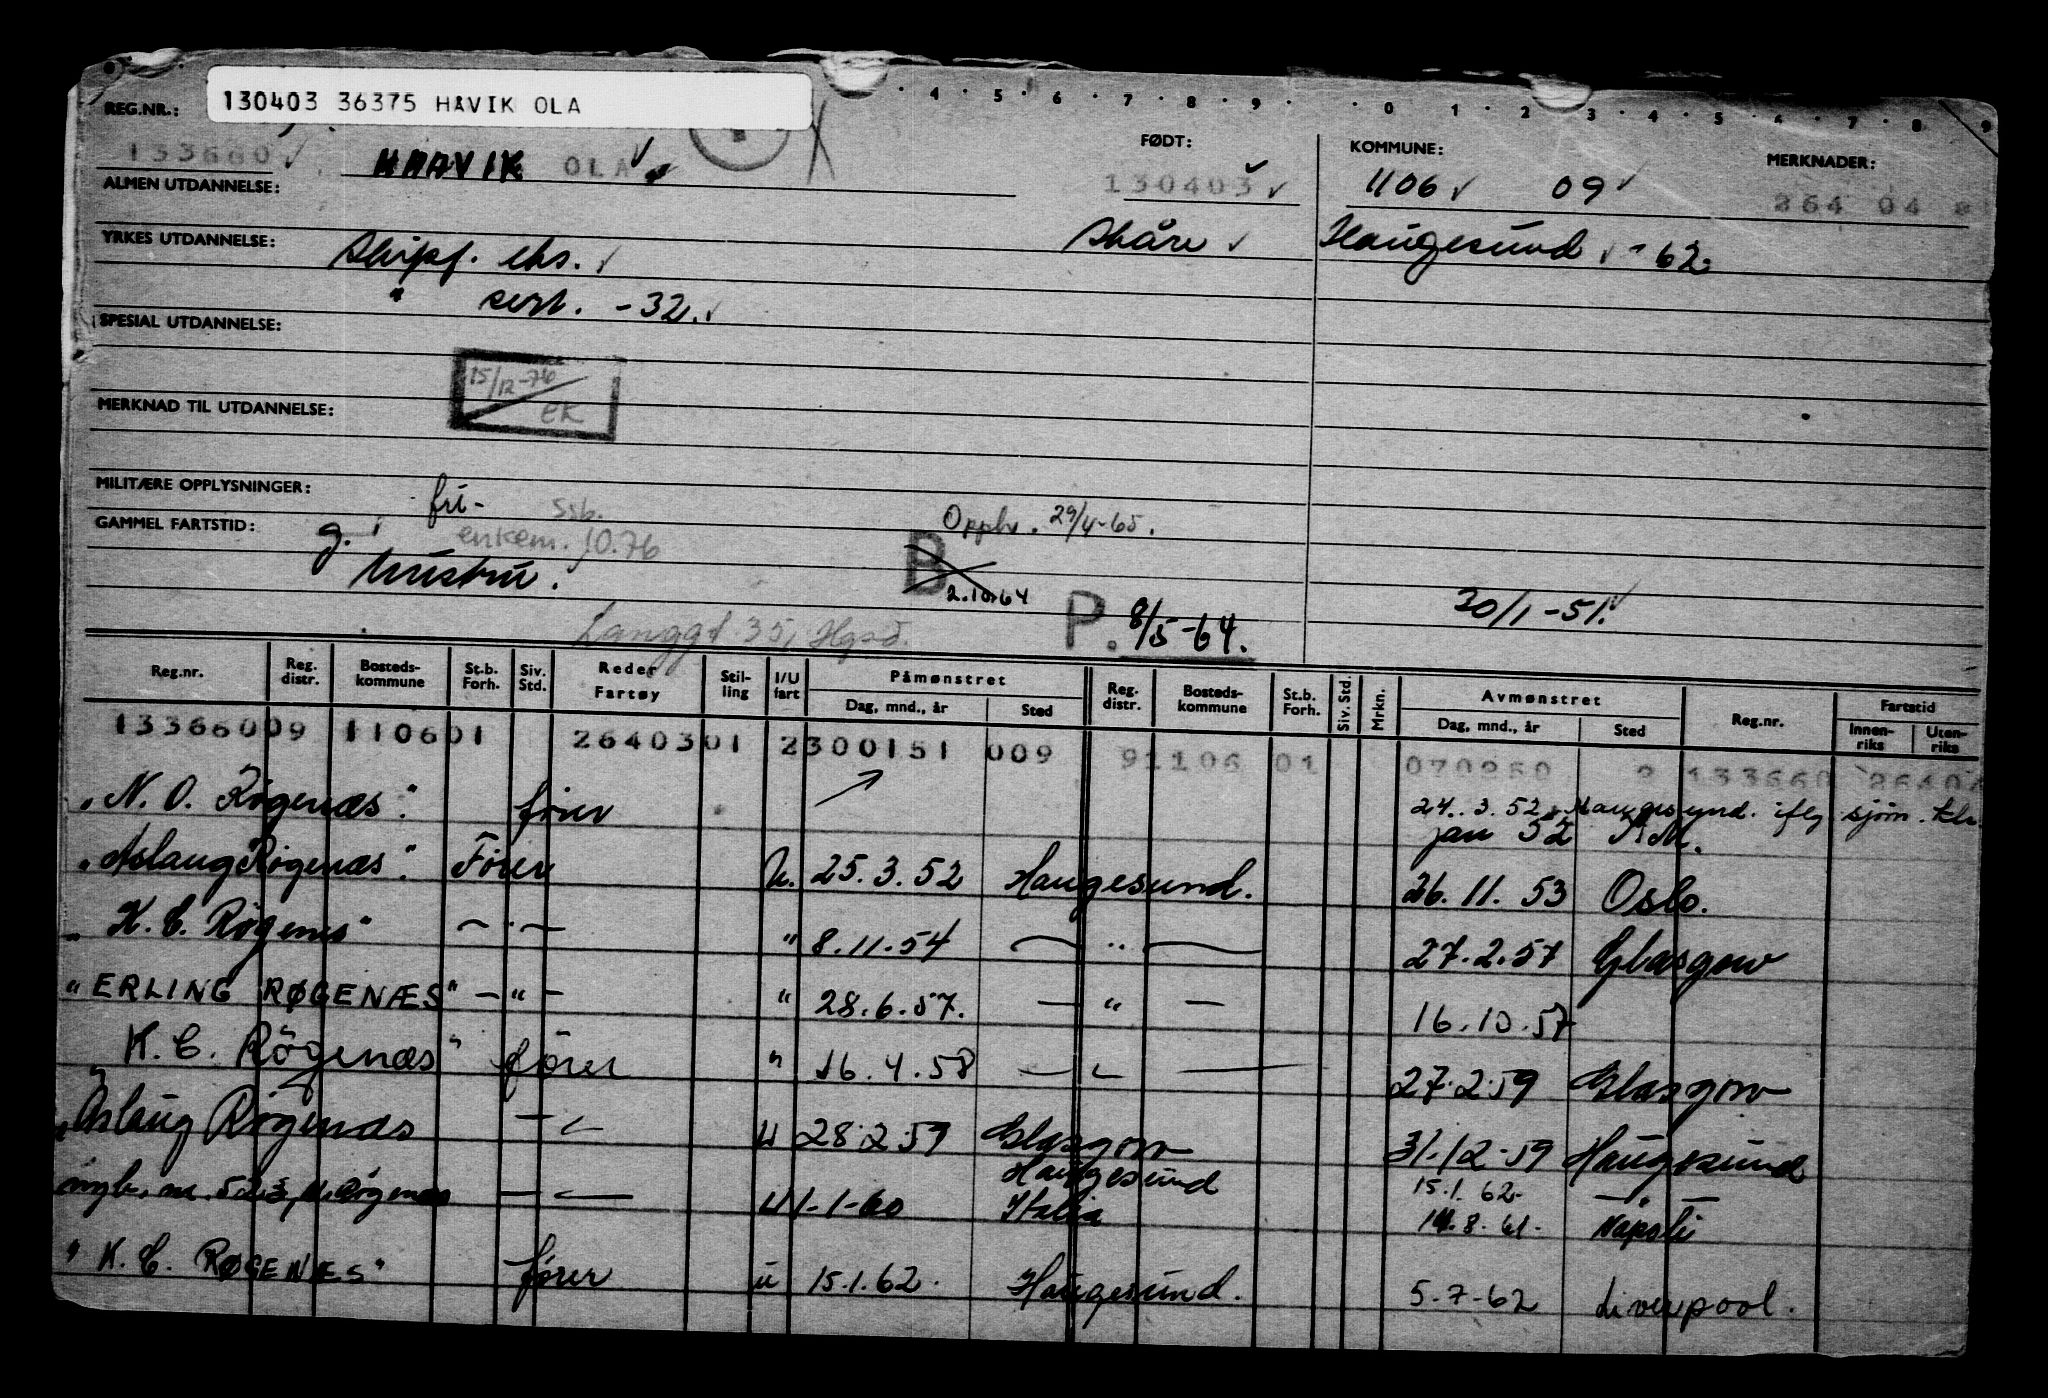 130403 36375 HAVIK OLA
4 . 5 . 6 . 7 . 8 . 9 . 0 . 1 . 2 . 3 . 4 . 5 . 6 . 7 . 8 . 9
REG.NR.: FØDT: KOMMUNE: MERKNADER:
133660 HAAVIK OLA 130403 1106 09 264 04
ALMEN UTDANNELSE:
Skåre Haugesund -62
YRKES UTDANNELSE: Skipsf. eks.
" sert. -32.
SPESIAL UTDANNELSE:
15/12-76
EK
MERKNAD TIL UTDANNELSE:
MILITÆRE OPPLYSNINGER: fri- ssb.
GAMMEL FARTSTID: g. enkem. 10.76 Opph. 29/4-65.
hustru. B 2.10.64
P. 8/5-64. 20/1-51.
Langgt 35, Hgsd.
Reg.nr. Reg. distr. Bosteds-kommune St.b. Forh. Siv. Std. Reder Fartøy Stil-ling I/U fart Påmønstret Dag, mnd., år Sted Reg. distr. Bosteds-kommune St.b. Forh. Siv. Std. Mrkn. Avmønstret Dag, mnd., år Sted Reg.nr. Fartstid Innen-riks Uten-riks
13366009 110601 2640301 2300151 009 91106 01 070250 2 133660 26404
"N. O. Røgenæs". fører 24.3.52 Haugesund. iflg sjøm.
jan 52
"Aslaug Røgenæs". Fører U. 25.3.52 Haugesund. 26.11.53 Oslo.
"K. C. Røgenes" — " — " 8.11.54 — " — 27.2.57 Glasgow
"ERLING RØGENÆS" — " — " 28.6.57. — " — 16.10.57
K. C. Røgenæs" fører " 16.4.58 — " — 27.2.59 Glasgow
"Aslaug Røgenæs — " — U 28.2.59 Glasgow 31.12.59 Haugesund
Haugesund 15.1.62 — " —
nyb. nr. 523, Røgenæs — " — U 1-1-60 Italia 14.8.61. Napoli
"K. C. RØGENÆS" fører U 15.1.62. Haugesund. 5.7-62 Liverpool.